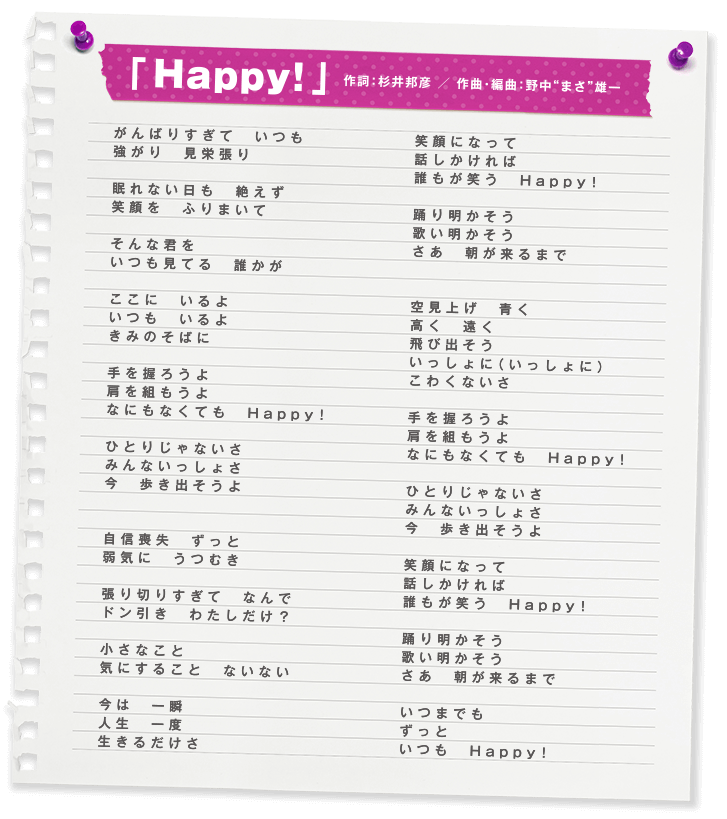 「Happy!」 作詞：杉井邦彦 ／ 作曲・編曲：野中“まさ”雄一
がんばりすぎて　いつも
強がり　見栄張り
眠れない日も　絶えず
笑顔を　ふりまいて
そんな君を
いつも見てる　誰かが
ここに　いるよ
いつも　いるよ
きみのそばに
手を握ろうよ
肩を組もうよ
なにもなくても　Happy！
ひとりじゃないさ
みんないっしょさ
今　歩き出そうよ
自信喪失　ずっと
弱気に　うつむき
張り切りすぎて　なんで
ドン引き　わたしだけ？
小さなこと
気にすること　ないない
今は　一瞬
人生　一度
生きるだけさ
笑顔になって
話しかければ
誰もが笑う　Happy！
踊り明かそう
歌い明かそう
さあ　朝が来るまで
空見上げ　青く
高く　遠く
飛び出そう
いっしょに（いっしょに）
こわくないさ
手を握ろうよ
肩を組もうよ
なにもなくても　Happy！
ひとりじゃないさ
みんないっしょさ
今　歩き出そうよ
笑顔になって
話しかければ
誰もが笑う　Happy！
踊り明かそう
歌い明かそう
さあ　朝が来るまで
いつまでも
ずっと
いつも　Happy！